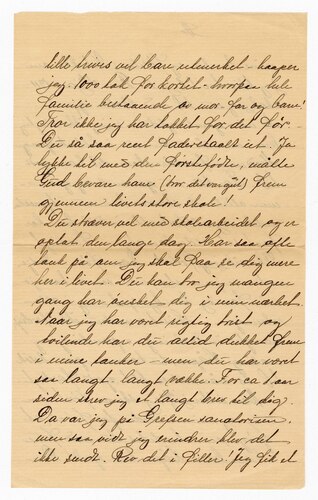 lille trives vel bare udmerket - haaper
jeg. 1000 tak for kortet - hvorpaa hele
familie bestaaende av mor far og barn!
Tror ikke jeg har takket for det før -
Du så saa rent faderstolt ut. Ja
lykke til med den førstefødte, maatte
Gud bevare ham (tror det var gut) frem
gjennem livets store skole!
Du stræver vel med skolearbeidet og er
optat den lange dag. Har saa ofte
tænkt på om jeg skal faa se dig mere
her i livet. Du kan tro jeg mangen
gang har ønsket dig i min nærhet.
Naar jeg har været rigtig trist og
tvilende har du altid dukket frem
i mine tanker - men du har været
saa langt - langt vække. For ca 1 aar
siden skrev jeg et langt brev til dig.
Da var jeg på Grefsen sanatorium.
men saa vidt jeg erindrer blev det
ikke sendt. Rev det i filler! Jeg fik et